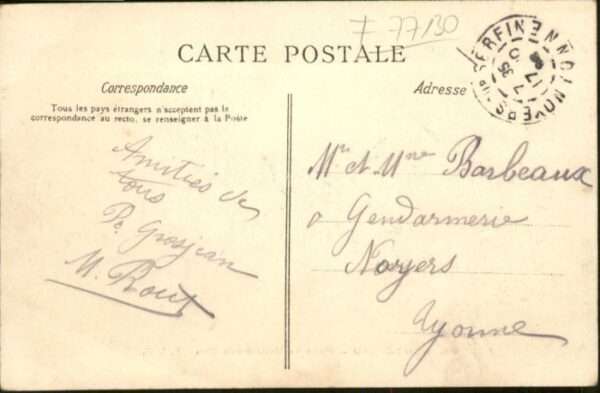 7 77130
CARTE POSTALE
Correspondance
Tous les pays étrangers n'acceptent pas la
correspondance au recto, se renseigner à la Poste
Amitiés de
tous
P. Grosjean
M. Rout
Adresse
NOYERS-SUR-SEREIN YONNE
17
7
35
Mr et Mme Barbeaux
Gendarmerie
Noyers
Yonne